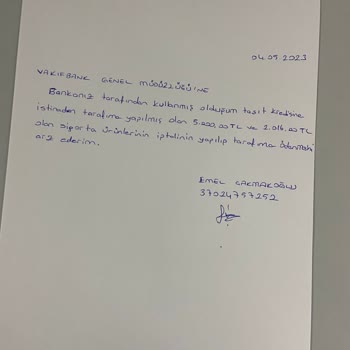 04.09.2023
VAKIFBANK GENEL MÜDÜRLÜĞÜNE
Bankanız tarafından kullanmış olduğum taşıt kredisine
istinaden tarafıma yapılmış olan 5.000,00 TL ve 2.016.00 TL
olan sigorta ürünlerinin iptalinin yapılıp tarafıma ödenmesini
arz ederim.
EMEL ÇAKMAKOĞLU
37024757252